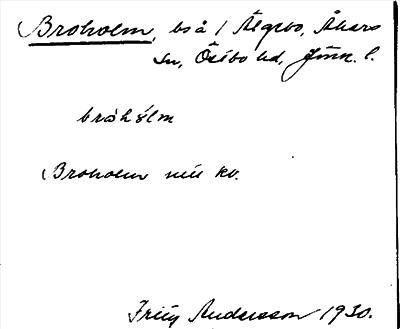 Broholm, bs å / Älgebo, Åkers
sn, Östbo hd, Jönk. l.
bråhólm
Broholm nu kv.
Fritz Andersson 1930.